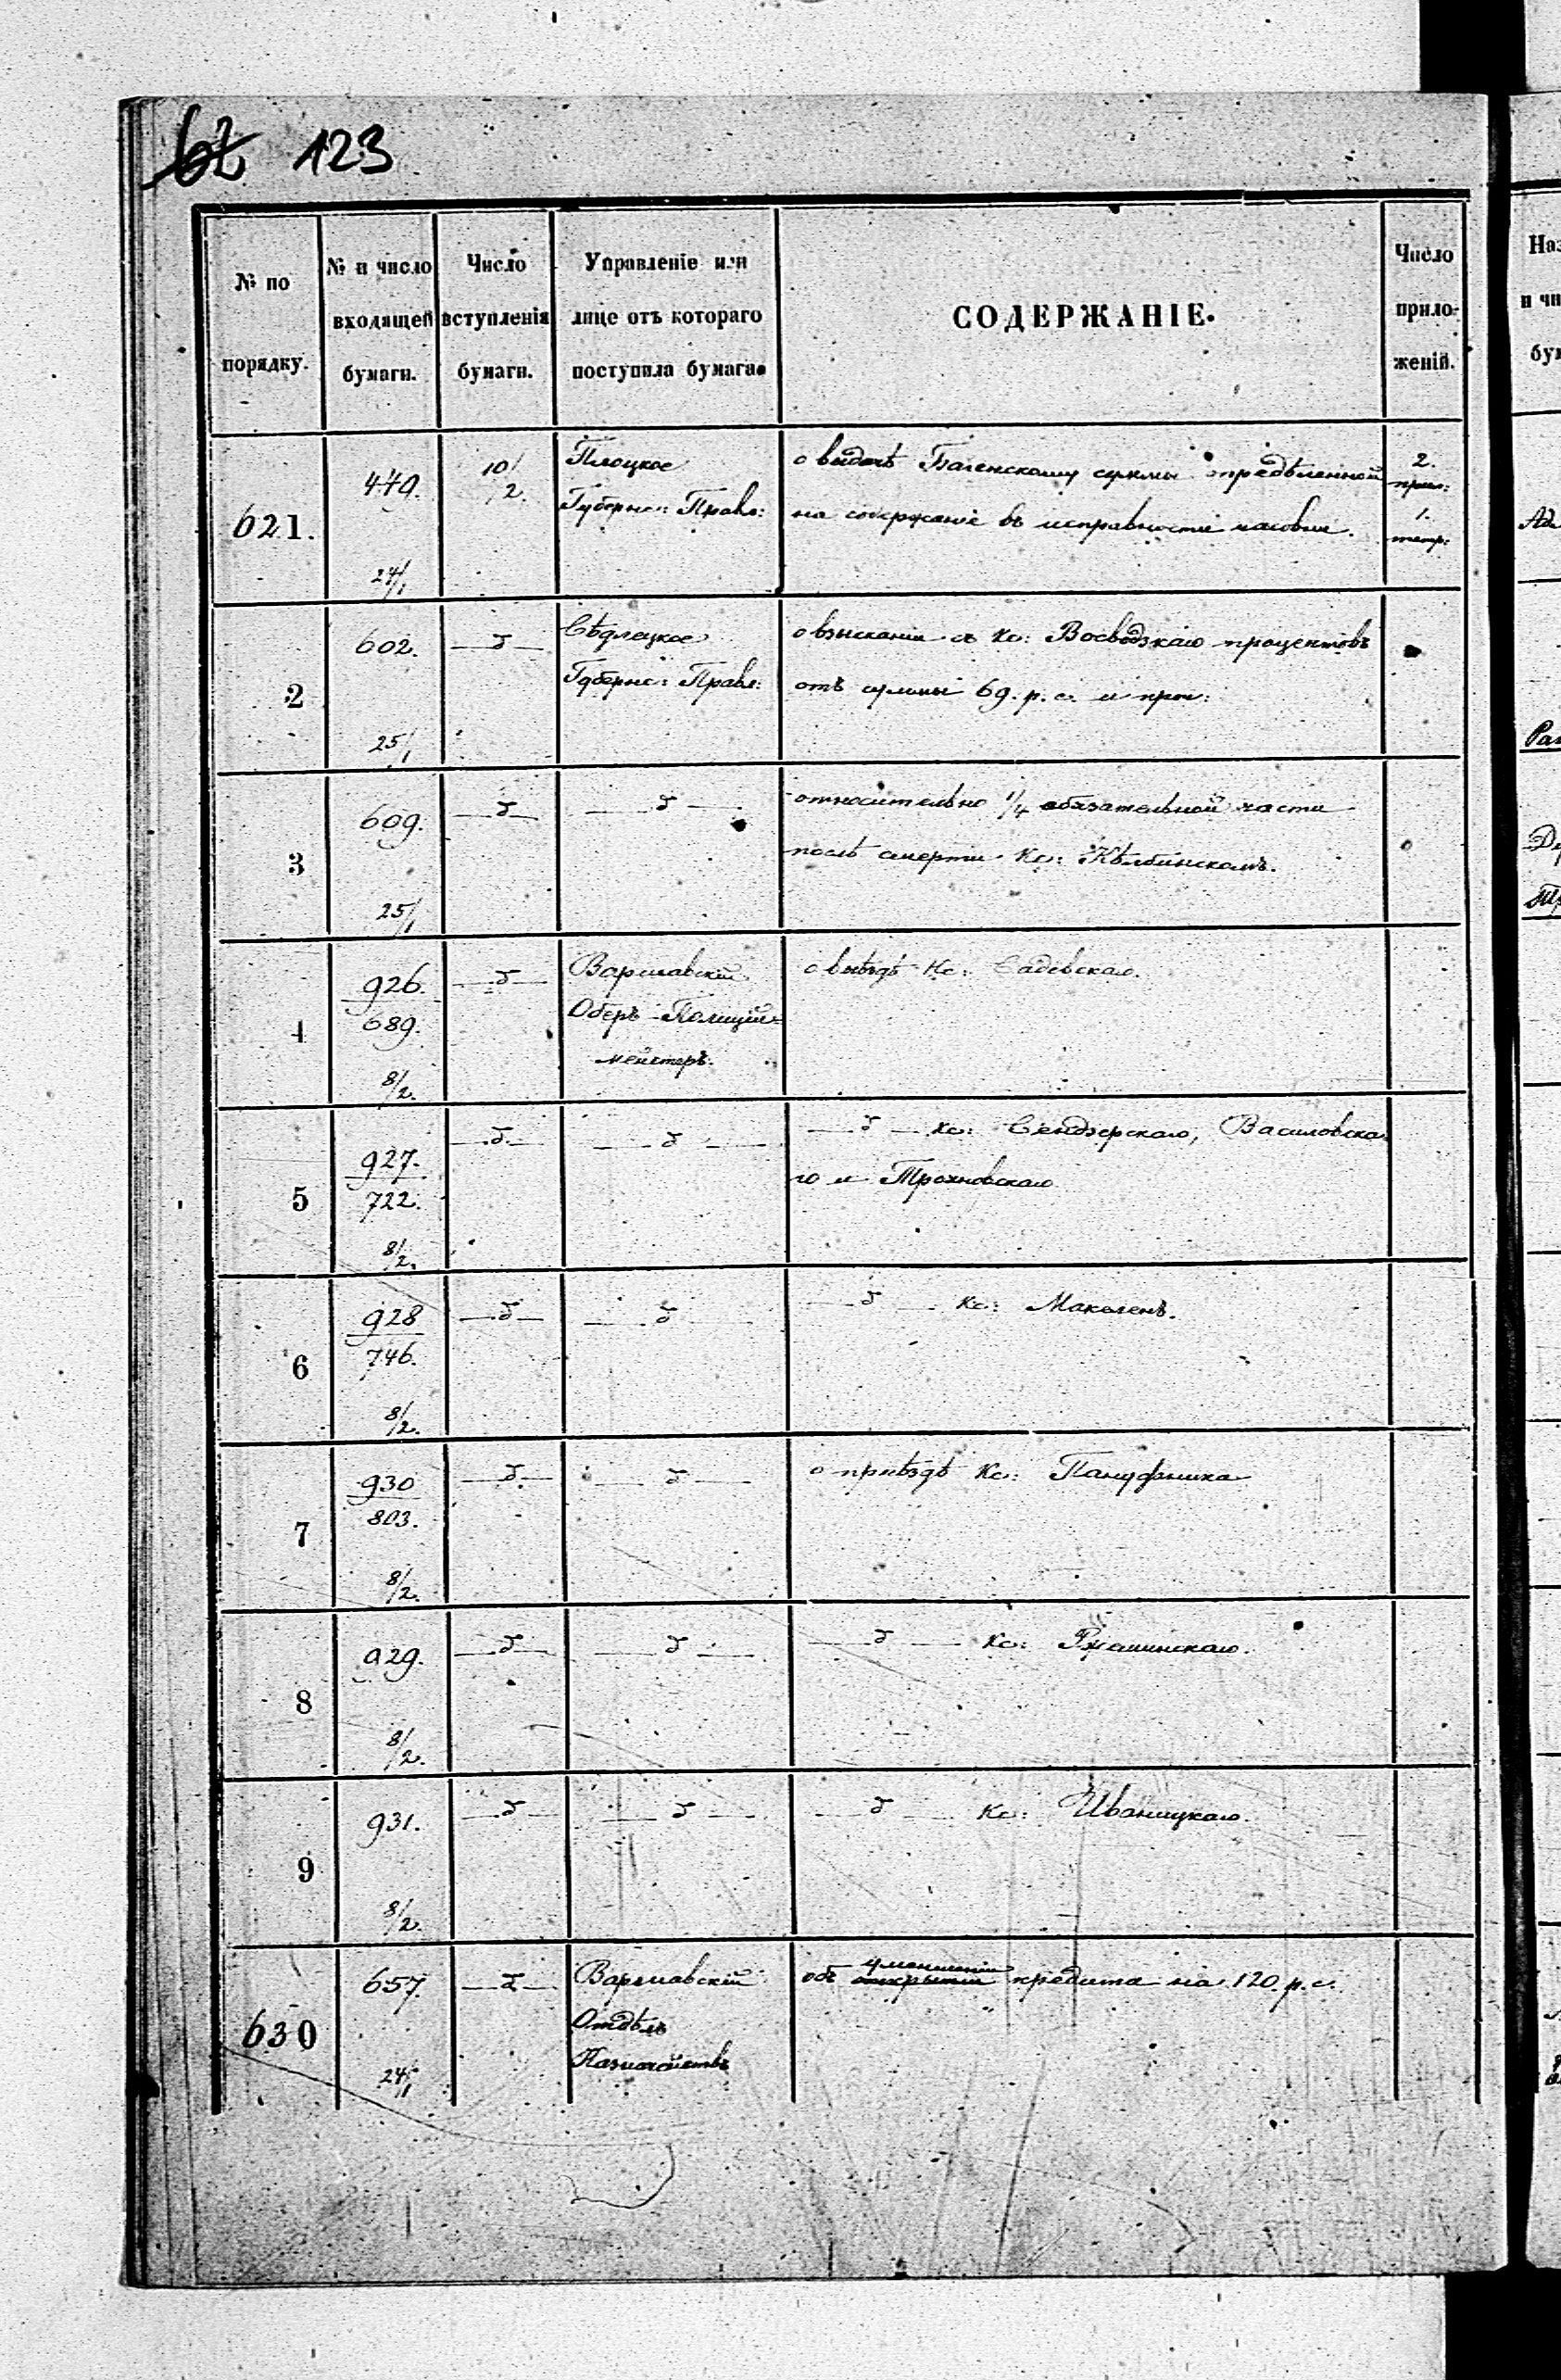 62 123
№ по порядку.
№ и число входящей бумаги.
Число вступленія бумаги.
Управленіе или лице отъ котораго поступила бумага.
СОДЕРЖАНІЕ.
Число приложеній.
621.
479.
24/1
10/2.
Плоцкое
Губернс: Правл:
о выдачѣ Багенскому суммы опредѣленной
на содержаніе въ исправности часовни.
2.
прил:
1.
тетр:
2
602.
25/1
—д—
Сѣдлецкое
Губернс: Правл:
о взысканіи съ Кс: Воеводзкаго процентовъ
отъ суммы 69. р. с. и проч:
3
609.
25/1
—д—
—д—
относительно 1/4 обязательной части
послѣ смерти Кс:
4
926.
689.
8/2.
—д—
Варшавскій
Оберъ-Полицій-
мейстеръ.
о выѣздѣ Кс: Садовскаго.
5
927.
722.
8/2.
—д—
—д—
—д— Кс: Сендзерскаго, Василовска-
го и Трояновскаго
6
928
746.
8/2.
—д—
—д—
—д— Кс:
7
930
803.
8/2.
—д—
—д—
о пріѣздѣ Кс: Пануфника
8
929.
8/2.
—д—
—д—
—д— Кс:
9
931.
8/2.
—д—
—д—
—д— Кс: Иваницкаго.
630
657.
24/1
—д—
Варшавскій
Отдѣлъ
Казначействъ
уменьшеніи
объ открытіи кредита на 120. р. с.